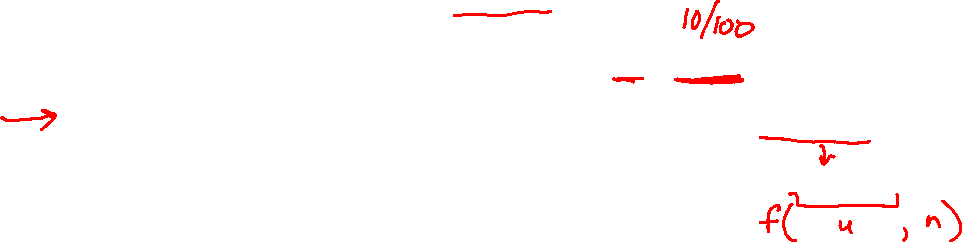 10/100
f( u , n)